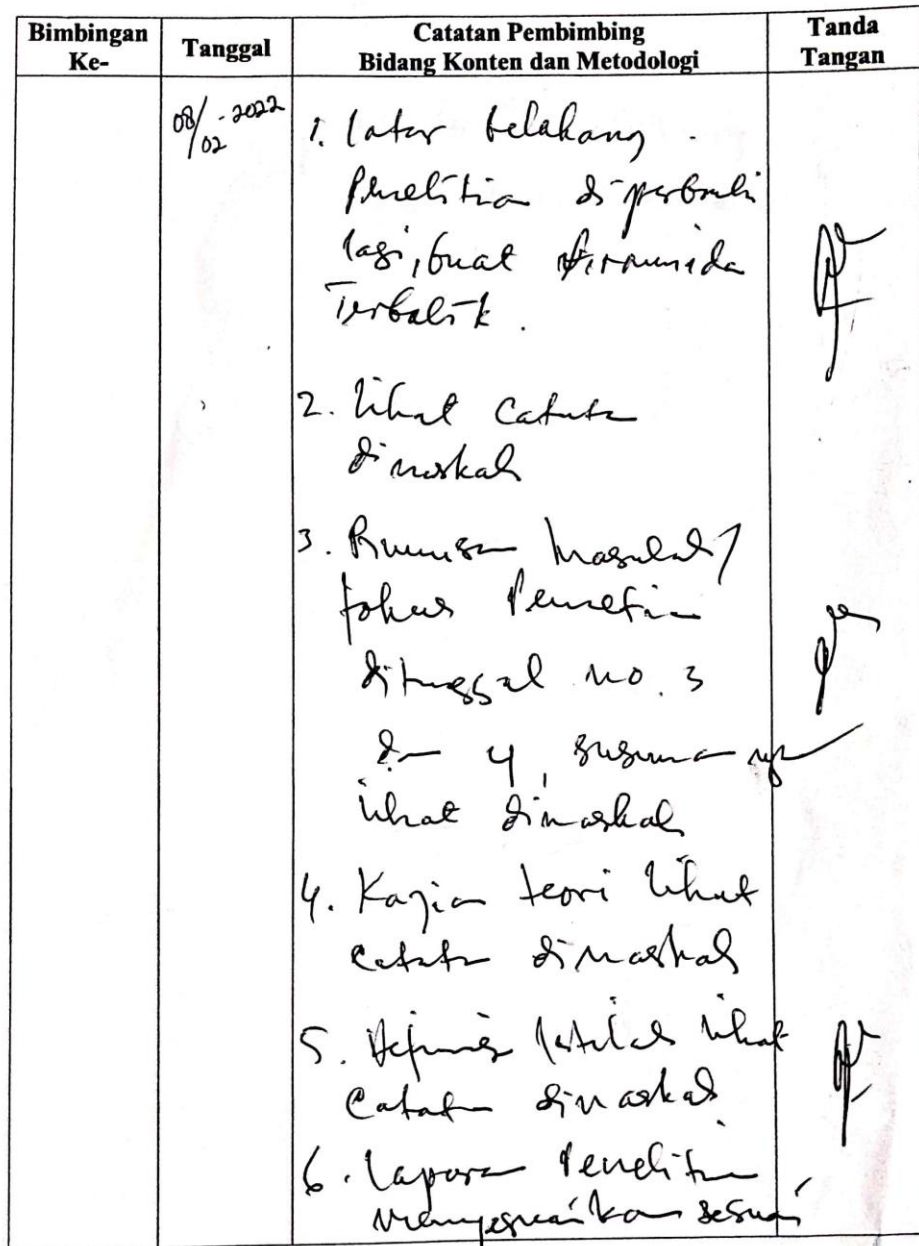 Bimbingan Ke-
Tanggal
Catatan Pembimbing
Bidang Konten dan Metodologi
Tanda Tangan
08/02 - 2022
1. latar belakang
Penelitian diperbaiki
lagi, buat Piramida
Terbalik.
2. lihat catatan
dinaskah
3. Rumusan Masalah /
fokus Penelitian
ditinggal no. 3
dan 4, susunannya
lihat dinaskah
4. Kajian teori lihat
catatan dinaskah
5. Definisi Istilah lihat
catatan dinaskah
6. Laporan Penelitian
menyesuaikan sesuai